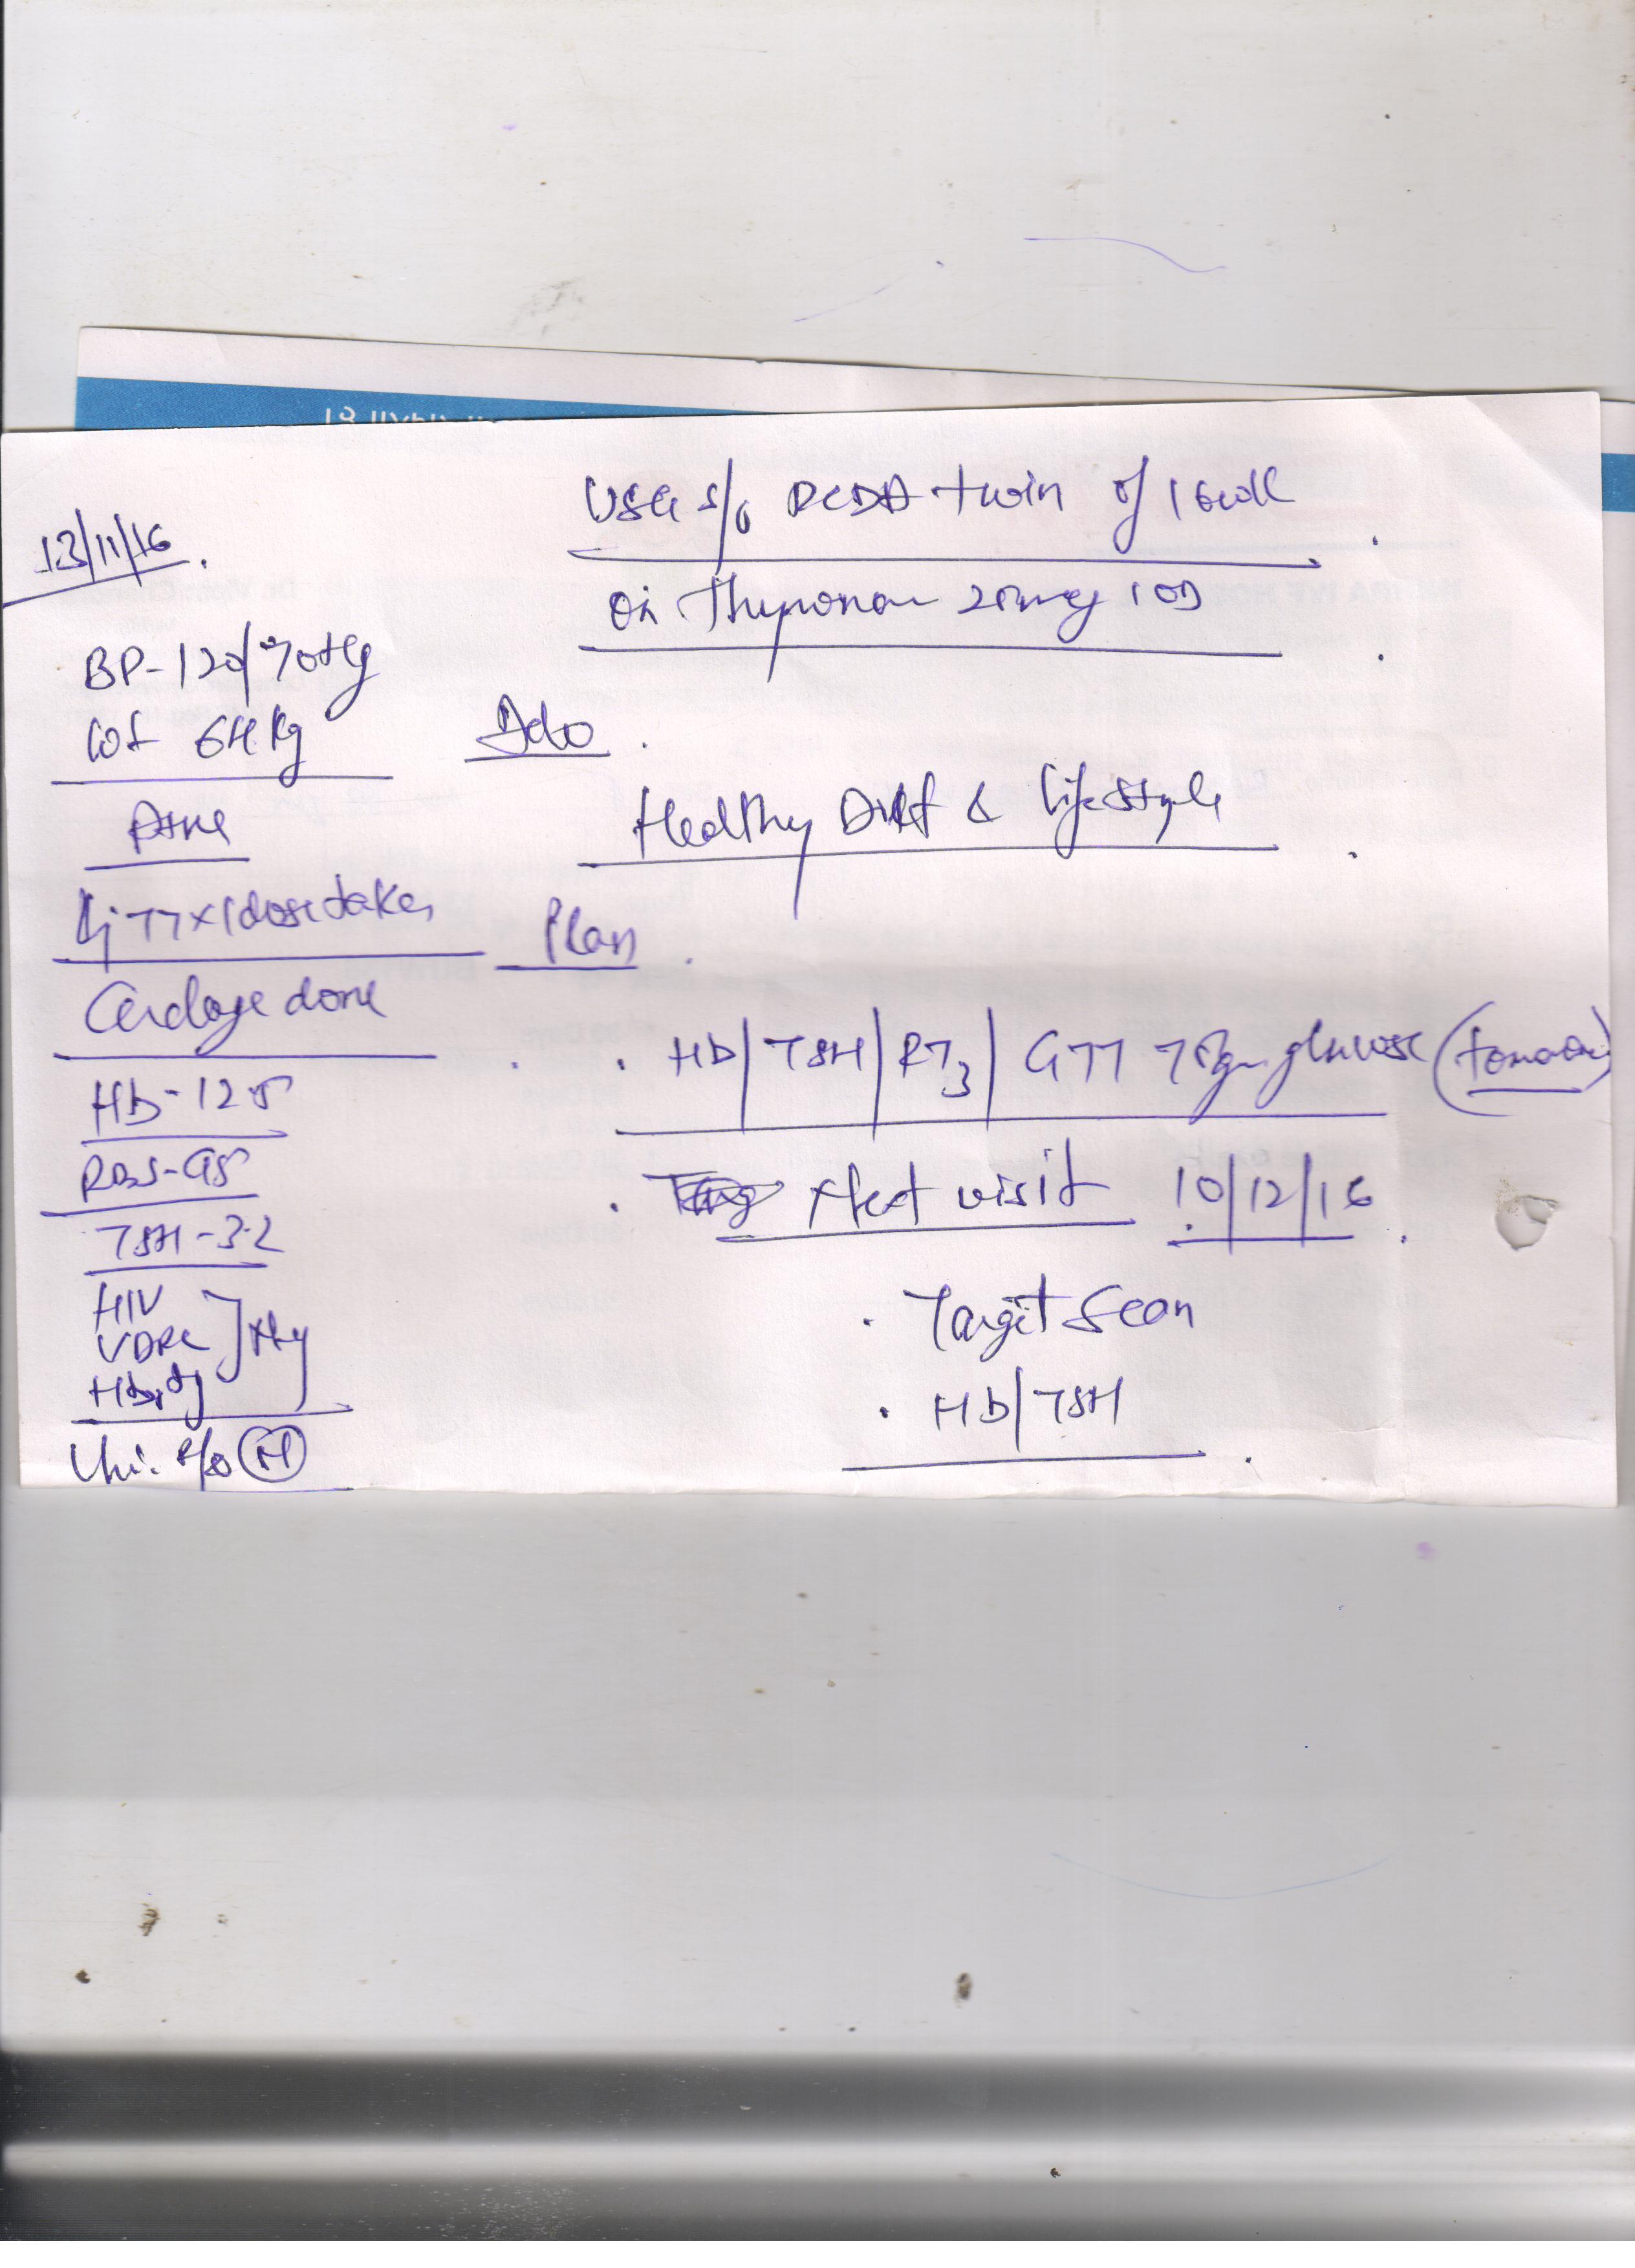 13/11/16.
BP-120/70Hg
Wt 64Kg
Inj TT x 1 dose taken
Cerclage done
Hb-12.5
RBS-95
TSH-3.2
HIV
VDRL
HbsAg
USG s/o DCDA twin of 16wk
on Thyronorm 25mcg 1OD
Healthy Diet & lifestyle
Plan
. Hb/TSH/FT3/GTT 75gm glucose (tomorrow)
. Next visit 10/12/16.
. Target Scan
. Hb/TSH